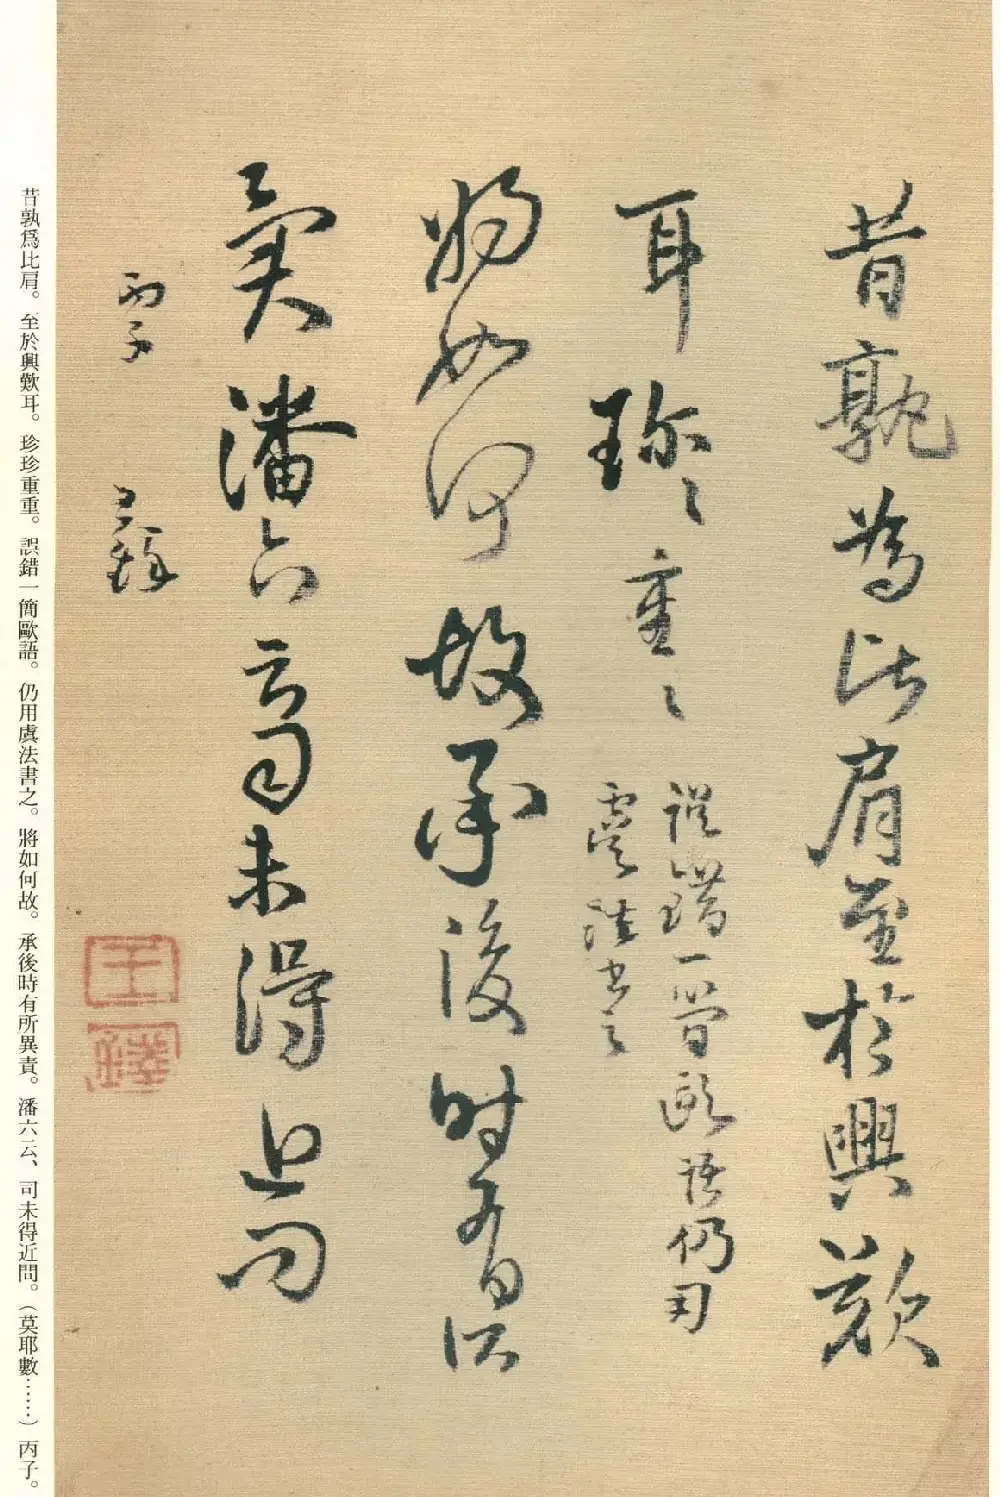 昔孰為比肩至於興歎
耳珍〻重〻
誤錯一簡歐語仍用
虞法書之
將如何故承後時有所
異責潘六云司未得近問
丙子
王鐸
王
鐸
昔孰爲比肩。至於興歎耳。珍珍重重。誤錯一簡歐語。仍用虞法書之。將如何故。承後時有所異責。潘六云、司未得近問。（莫耶數……）丙子。